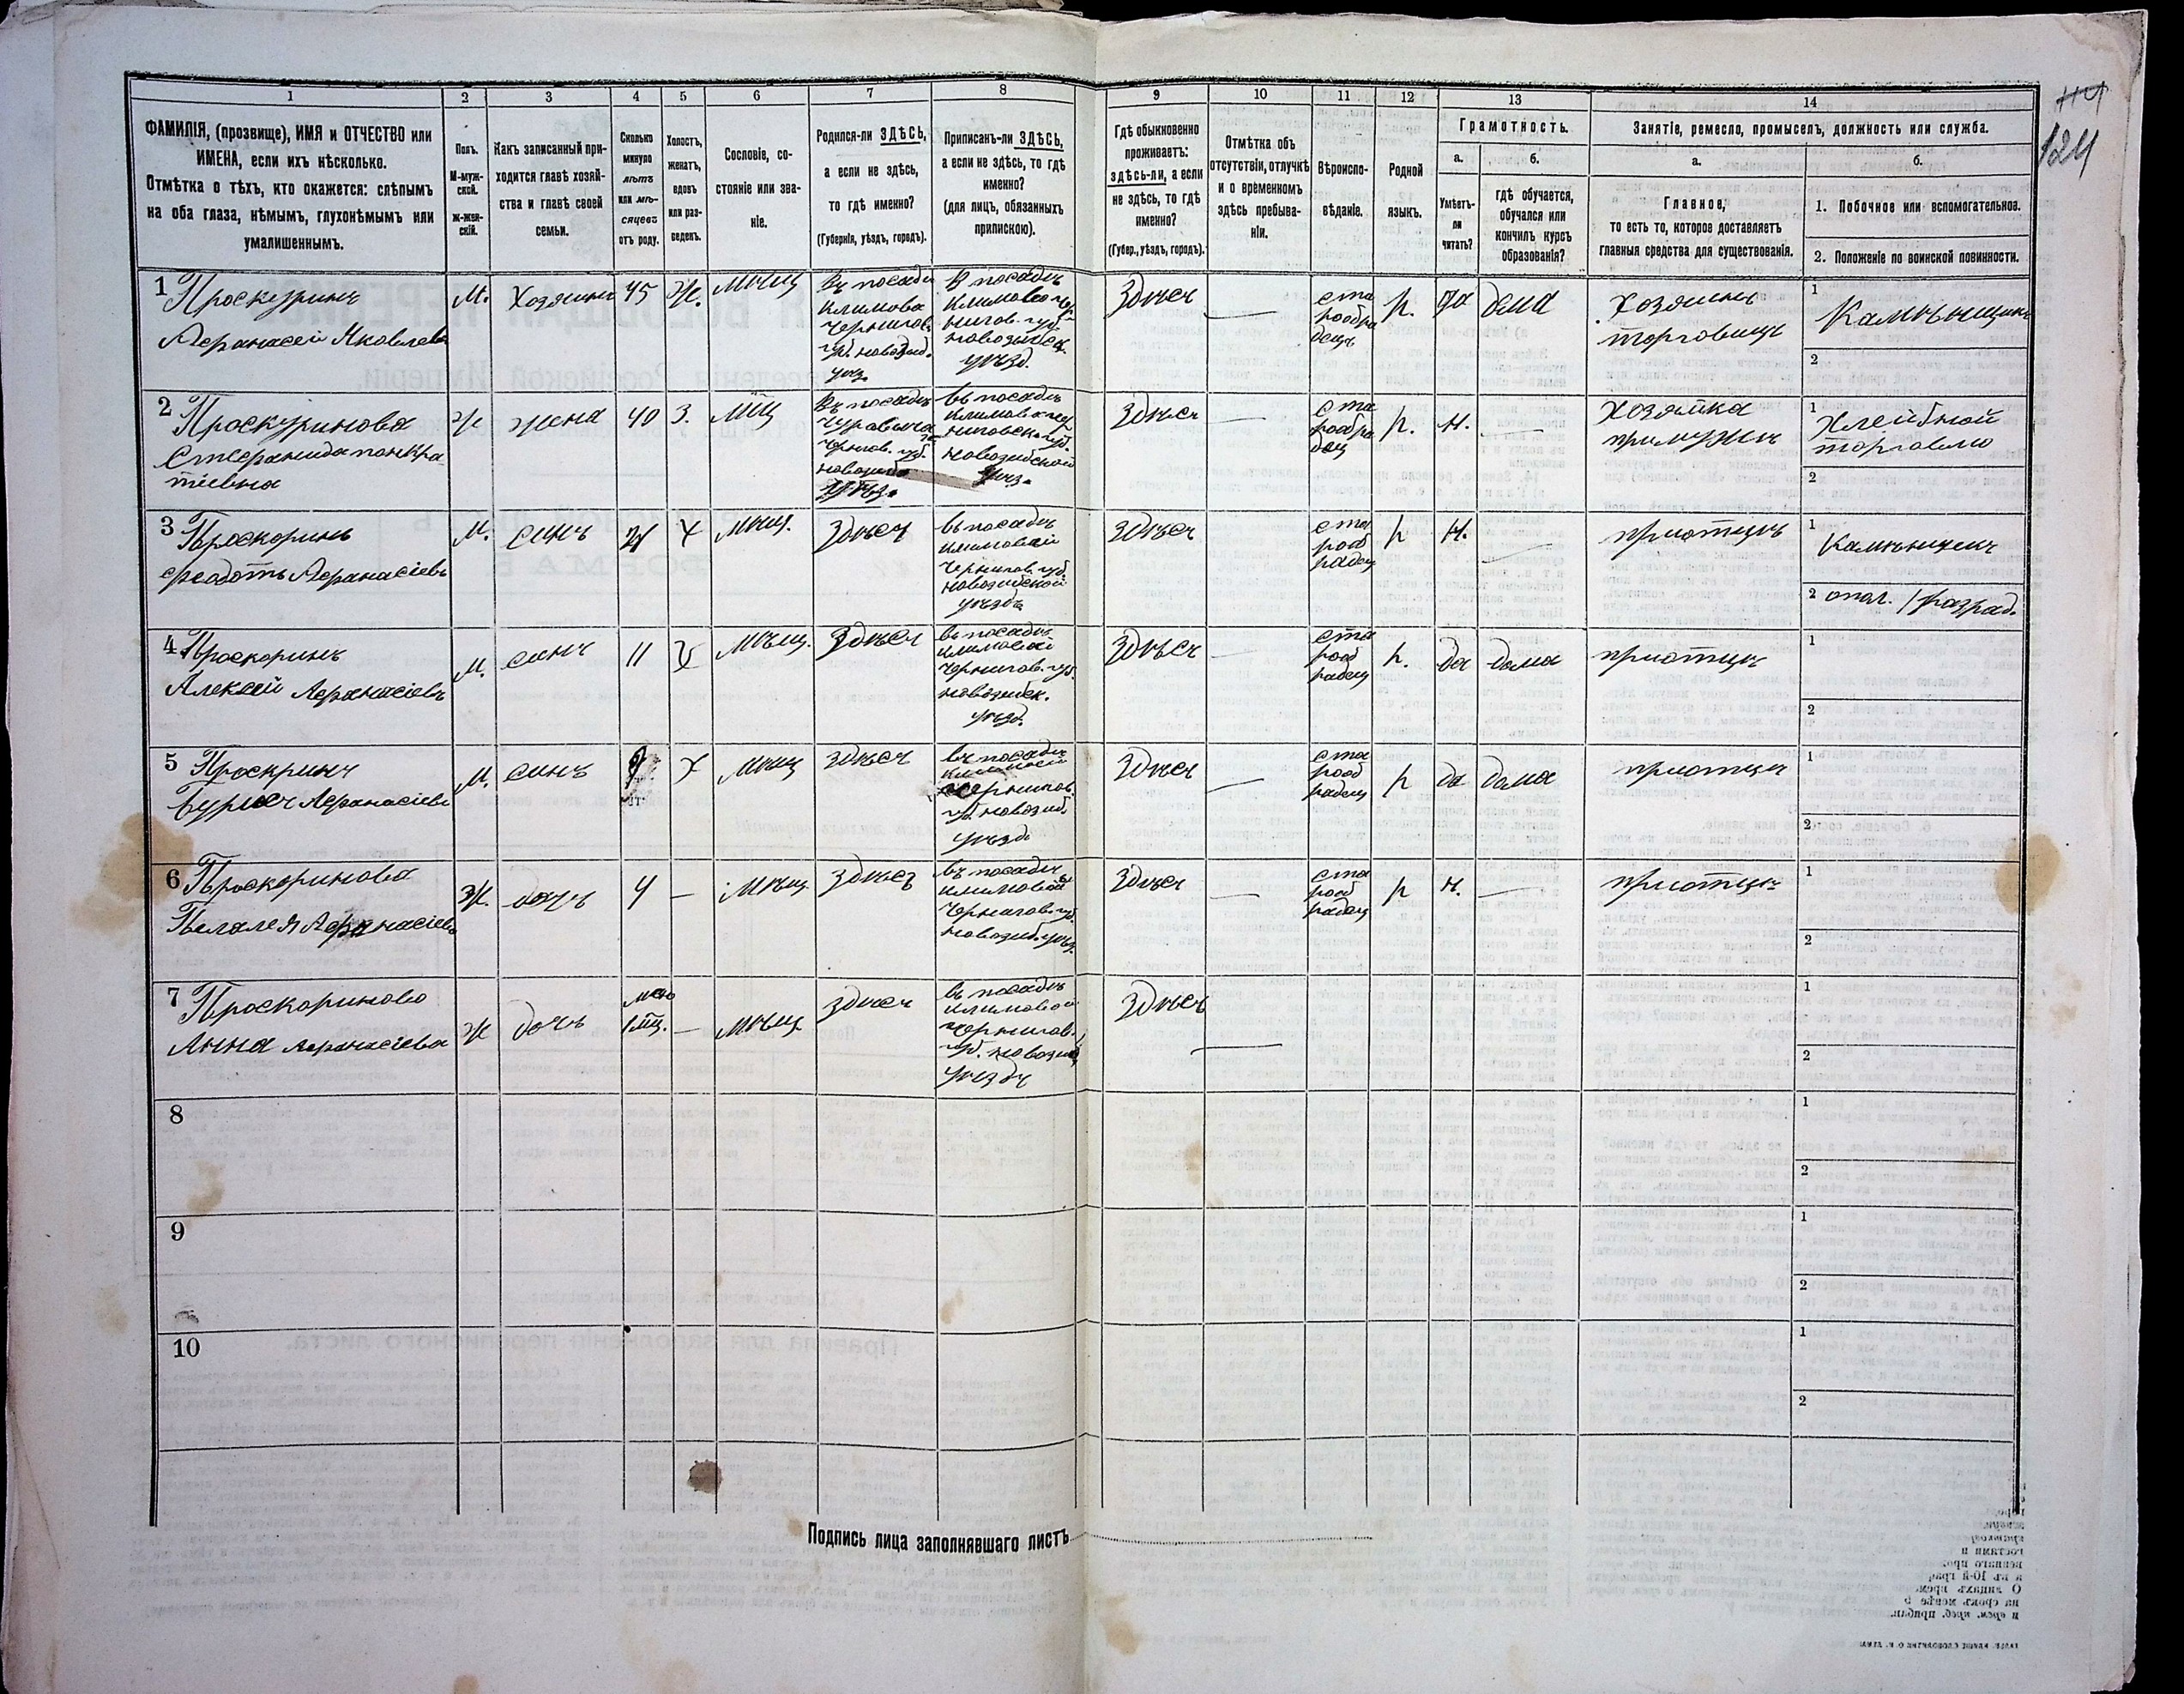 114
124
1
2
3
4
5
6
7
8
9
10
11
12
13
14
ФАМИЛІЯ, (прозвище), ИМЯ и ОТЧЕСТВО или
ИМЕНА, если ихъ нѣсколько.
Отмѣтка о тѣхъ, кто окажется: слѣпымъ
на оба глаза, нѣмымъ, глухонѣмымъ или
умалишеннымъ.
Полъ.
М-муж-
ской.
ж-жен-
скій.
Какъ записанный при-
ходится главѣ хозяй-
ства и главѣ своей
семьи.
Сколько
минуло
лѣтъ
или мѣ-
сяцевъ
отъ роду.
Холостъ,
женатъ,
вдовъ
или раз-
веденъ.
Сословіе, со-
стояніе или зва-
ніе.
Родился-ли ЗДѢСЬ,
а если не здѣсь,
то гдѣ именно?
(Губернія, уѣздъ, городъ).
Приписанъ-ли ЗДѢСЬ,
а если не здѣсь, то гдѣ
именно?
(для лицъ, обязанныхъ
припискою).
Гдѣ обыкновенно
проживаетъ:
здѣсь-ли, а если
не здѣсь, то гдѣ
именно?
(Губер., уѣздъ, городъ).
Отмѣтка объ
отсутствіи, отлучкѣ
и о временномъ
здѣсь пребыва-
ніи.
Вѣроиспо-
вѣданіе.
Родной
языкъ.
Грамотность.
а.
б.
Умѣетъ-
ли
читать?
гдѣ обучается,
обучался или
кончилъ курсъ
образованія?
Занятіе, ремесло, промыселъ, должность или служба.
а.
б.
Главное,
то есть то, которое доставляетъ
главныя средства для существованія.
1. Побочное или вспомогательное.
2. Положеніе по воинской повинности.
1 Проскуринъ
Афанасей Яковлевъ
М.
Хозяинъ
45
Ж.
Мѣщ
Въ посадѣ
Климова
Чернигов.
губ. новозыб.
уѣз.
В посадѣ
Климово Чер
нигов. губ.
новозыбск.
уѣзд.
Здѣсь
—
ста
рообра
децъ
р.
да
дома
Хозяинъ
торговецъ
1
Камѣнщикъ
2
2 Проскуринова
Стефанида понкра
тіевна
ж
жена
40
З.
Мѣщ
Въ посадѣ
Чуровича
Чернигов. губ.
новозыб
уѣз.
въ посадѣ
Климов. чер
ниговск. губ.
Новозыбской
уѣз.
Здѣсь
—
ста
рообра
дец
р.
н.
—
Хозяйка
примужи
1
Хлейбной
торговлю
2
3 Проскоринъ
федотъ Афанасіевъ
М.
синъ
21
Х
Мѣщ.
Здѣсь
въ посадѣ
климовой
Чернигов. губ.
новозибской
уѣздъ
здѣсь
ста
рооб
радец
р
н.
—
приотцѣ
1
Камѣнщекъ
2 опол. 1 разряд.
4 Проскоринъ
Алексей Афанасіевъ
М.
синъ
11
Х
Мѣщ.
Здѣсь
въ посадѣ
климовой
Чернигов. губ.
новозибск.
уѣзд.
Здѣсь
—
ста
рооб
радец
р.
да
дома
приотцѣ
1
2
5 Проскринъ
Афанасіевъ
М.
синъ
Х
Мѣщ
здѣсь
въ посадѣ
климовой
чернигов.
губ. новозиб.
уѣзд.
Здѣсь
—
ста
рооб
радец
р
да
дома
приотце
1
2
6 Проскоринова
Пелалея Афанасіева
Ж.
дочь
4
—
Мѣщ.
здѣсь
въ посадѣ
климовой
Чернигов. губ.
новозиб. уѣз.
Здѣсь
—
ста
рооб
радец
р
н.
—
приотцѣ
1
2
7 Проскориново
Анна Афанасіева
ж
дочь
1 мц.
—
Мѣщ
здѣсь
въ посадѣ
климовой
чернигов.
губ. новозиб
уѣздъ
Здѣсь
—
1
2
8
1
2
9
1
2
10
1
2
Подпись лица заполнявшаго листъ